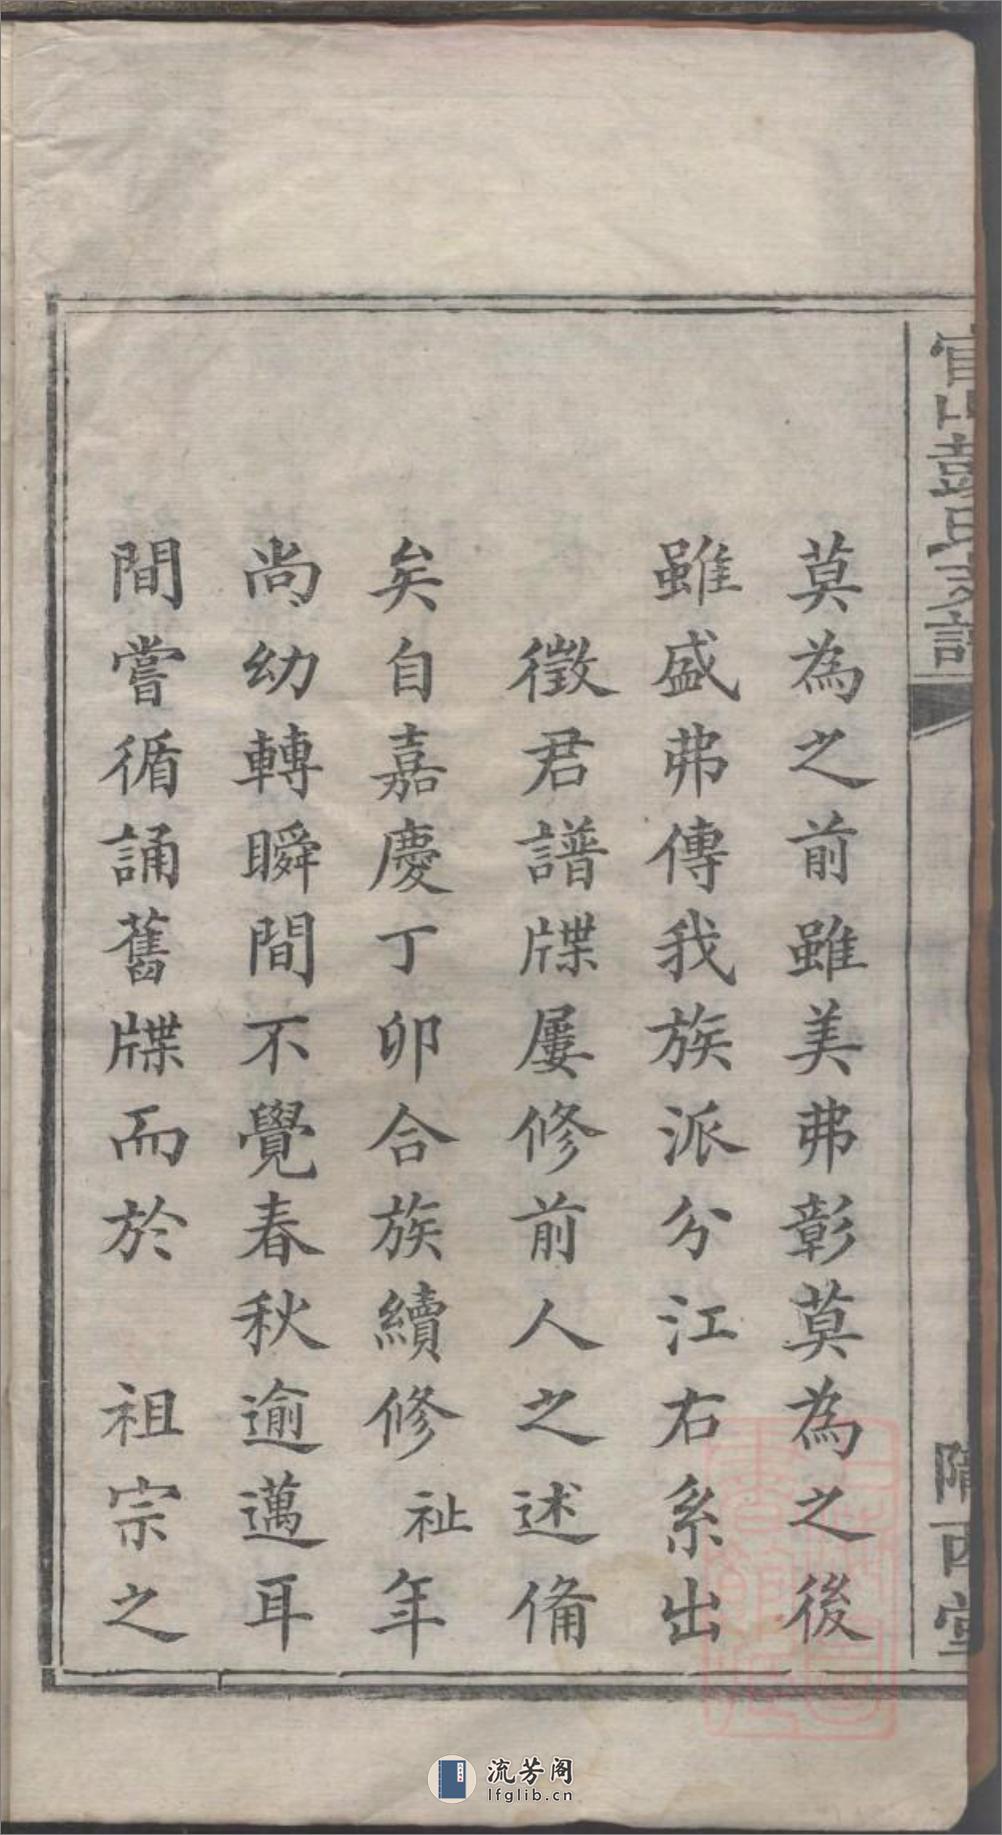 官山彭氏支譜
隴西堂
莫為之前雖美弗彰莫為之後
雖盛弗傳我族派分江右系出
徵君譜牒屢修前人之述備
矣自嘉慶丁卯合族續修祉年
尚幼轉瞬間不覺春秋逾邁耳
間嘗循誦舊牒而於 祖宗之
流芳阁
lfglib.cn